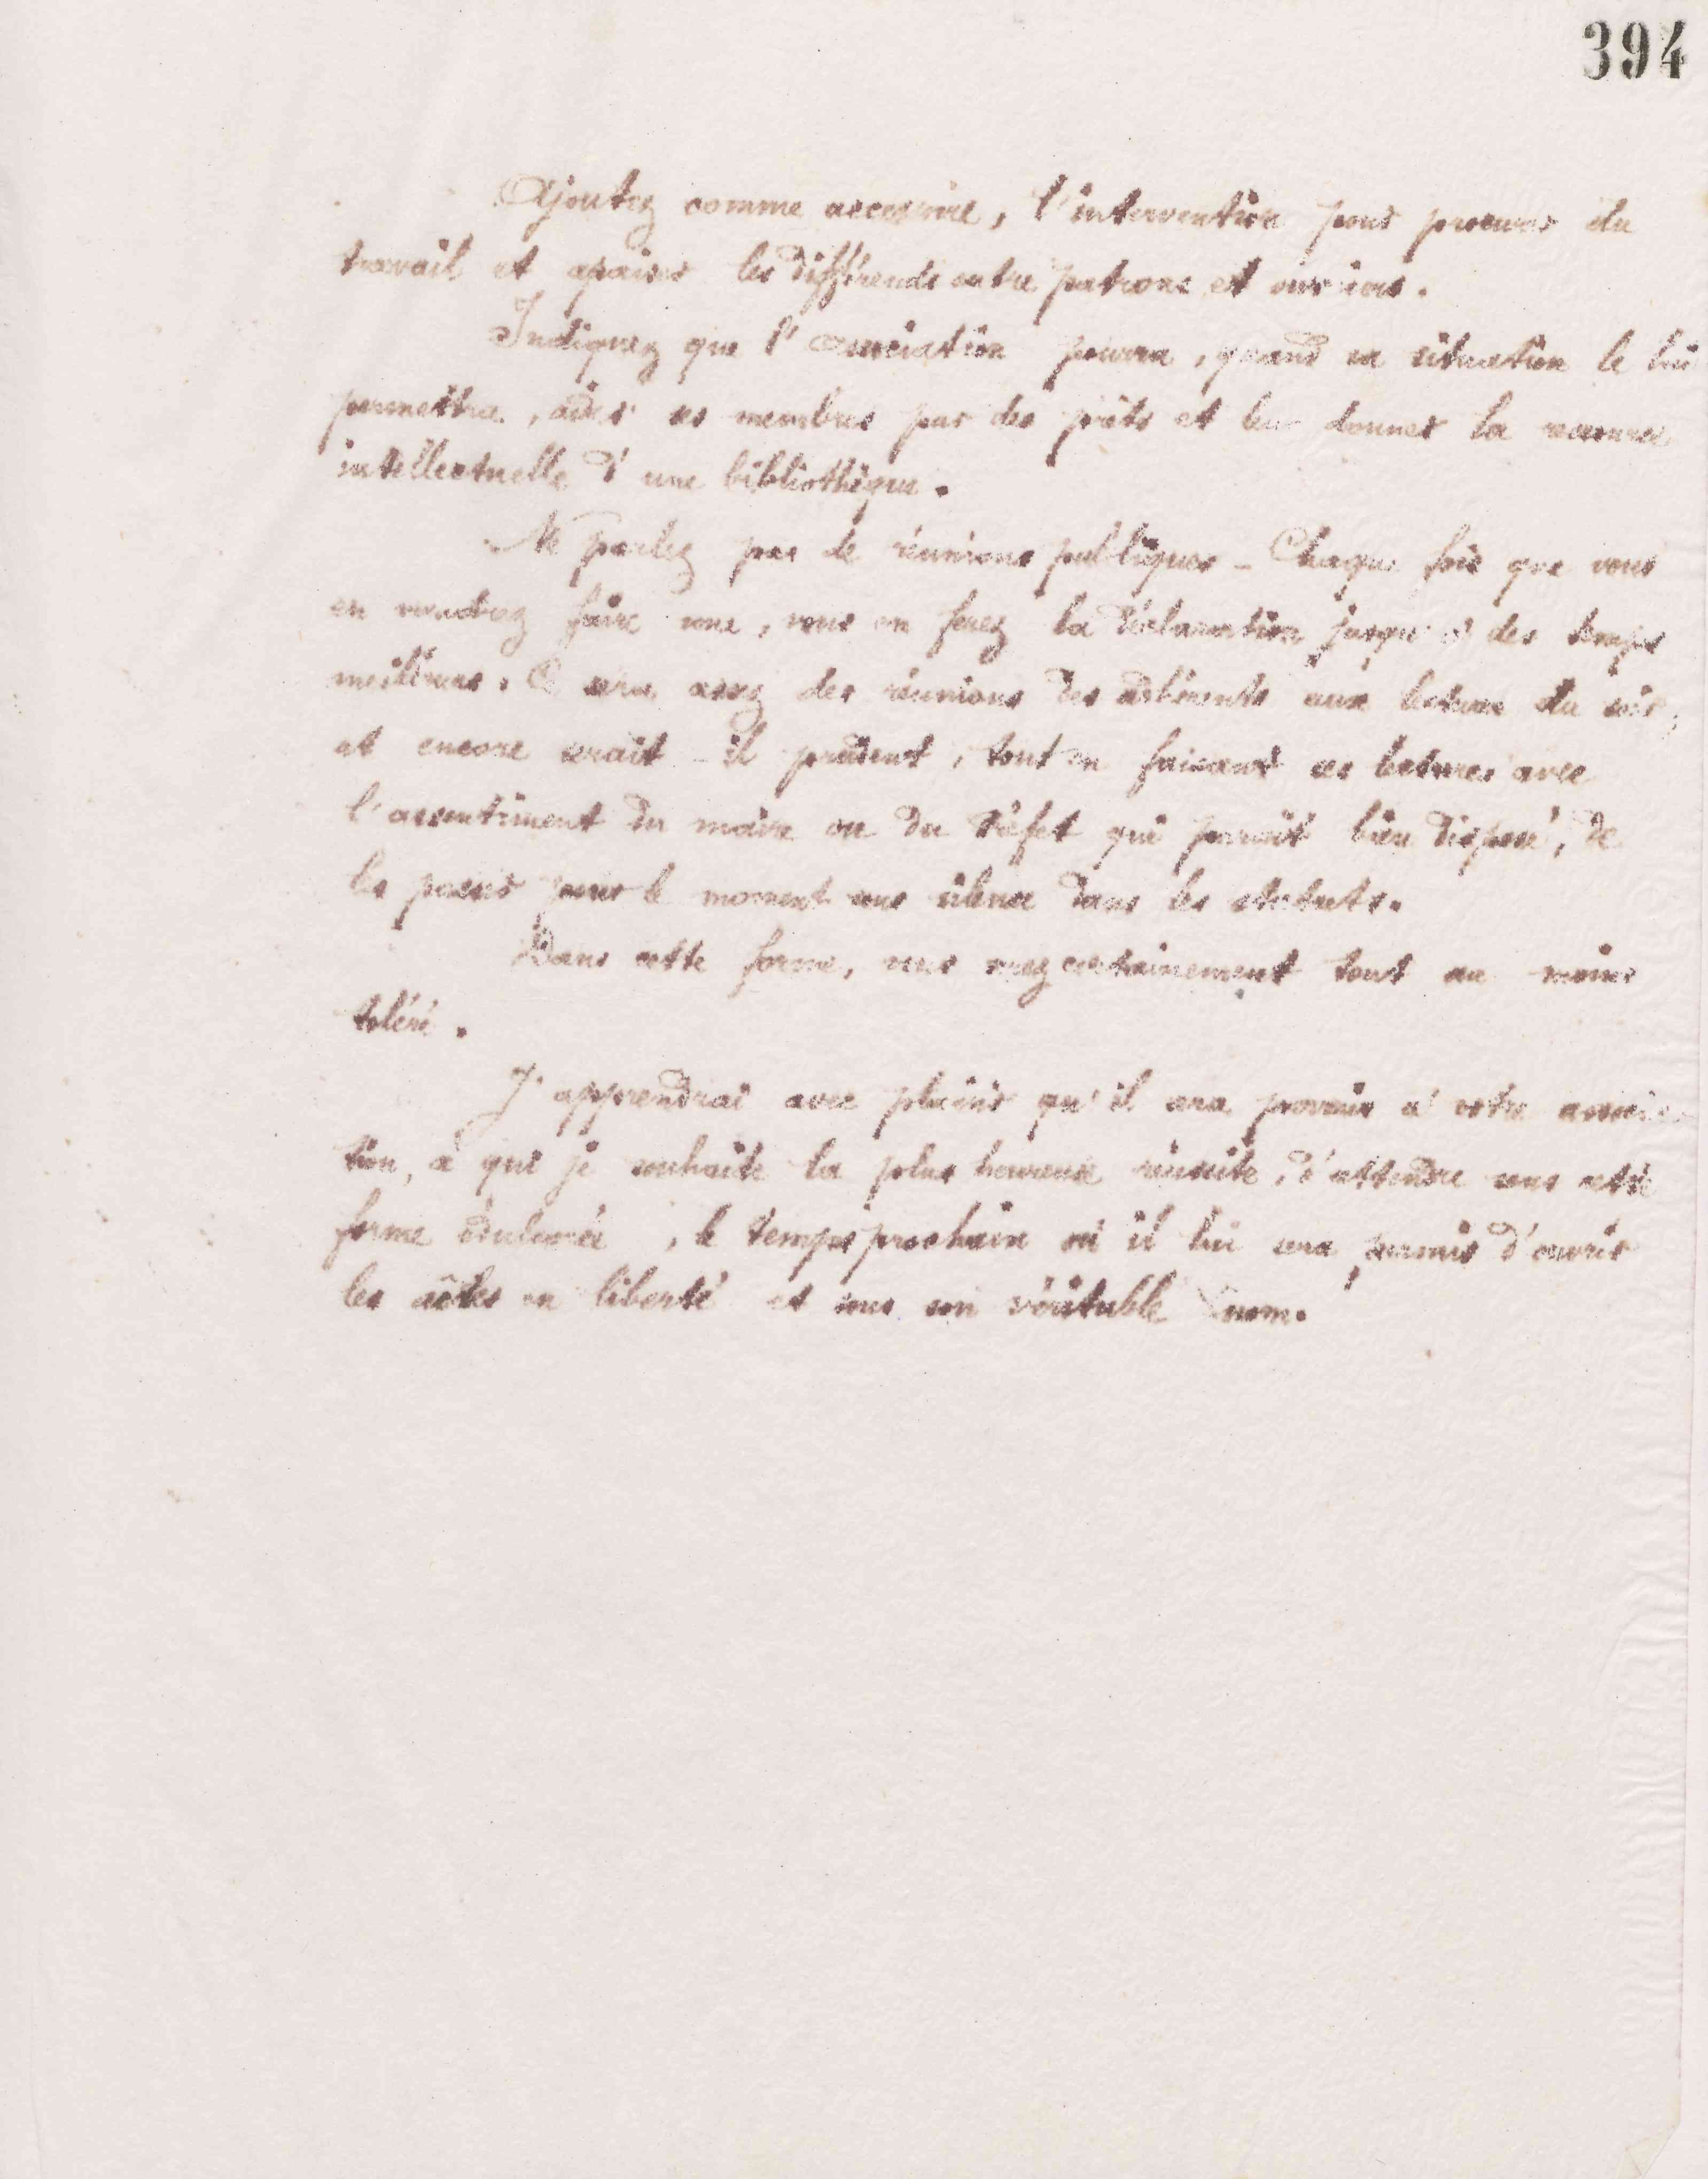 394
Ajoutez comme accessoire, l'intervention pour procurer du
travail et apaiser les différends entre patrons et ouvriers.
Indiquez que l'association pourra, quand sa situation le lui
permettra, aider ses membres par des prêts et leur donner la ressource
intellectuelle d'une bibliothèque.
Ne parlez pas de réunions publiques - Chaque fois que vous
en voudrez faire une, vous en ferez la déclaration jusqu'à des temps
meilleurs. Ce sera assez des réunions des adhérents aux lectures du soir,
et encore serait-il prudent, tout en faisant ces lectures avec
l'assentiment du maire ou du préfet qui paraît bien disposé, de
les passer pour le moment sous silence dans les statuts.
Dans cette forme, vous serez certainement tout au moins
toléré.
J'apprendrai avec plaisir qu'il sera provenu à votre associa
tion, à qui je souhaite la plus heureuse réussite, d'attendre sous cette
forme édulcorée, le temps prochain où il lui sera permis d'ouvrir
les ailes en liberté et sous son véritable nom.